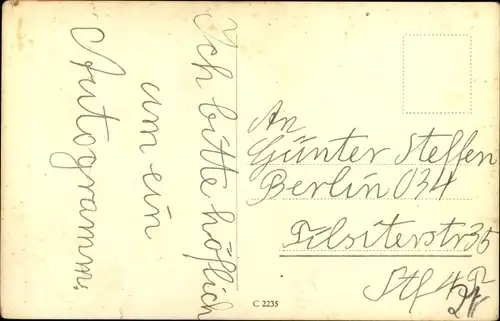 Ich bitte höflich
um ein
Autogramm.
An
Günter Steffen
Berlin 034
Tilsiterstr 35
Stf 4
C 2235